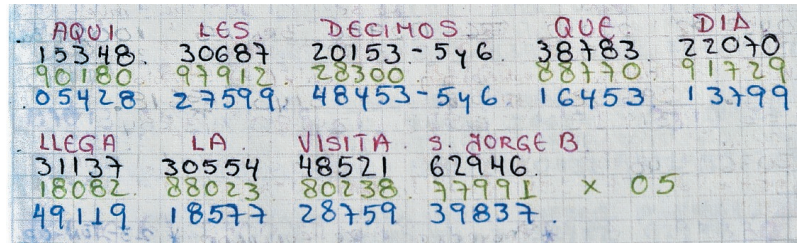 AQUI LES DECIMOS QUE DIA
15348. 30687 20153-5y6. 38783. 22070
90180 97912 28300 88770 91729
05428 27599 48453-5y6 16453 13799
LLEGA LA VISITA. S. JORGE B.
31137 30554 48521 62946.
18082. 88023. 80238 77991 x 05
49119 18577 28759 39837.